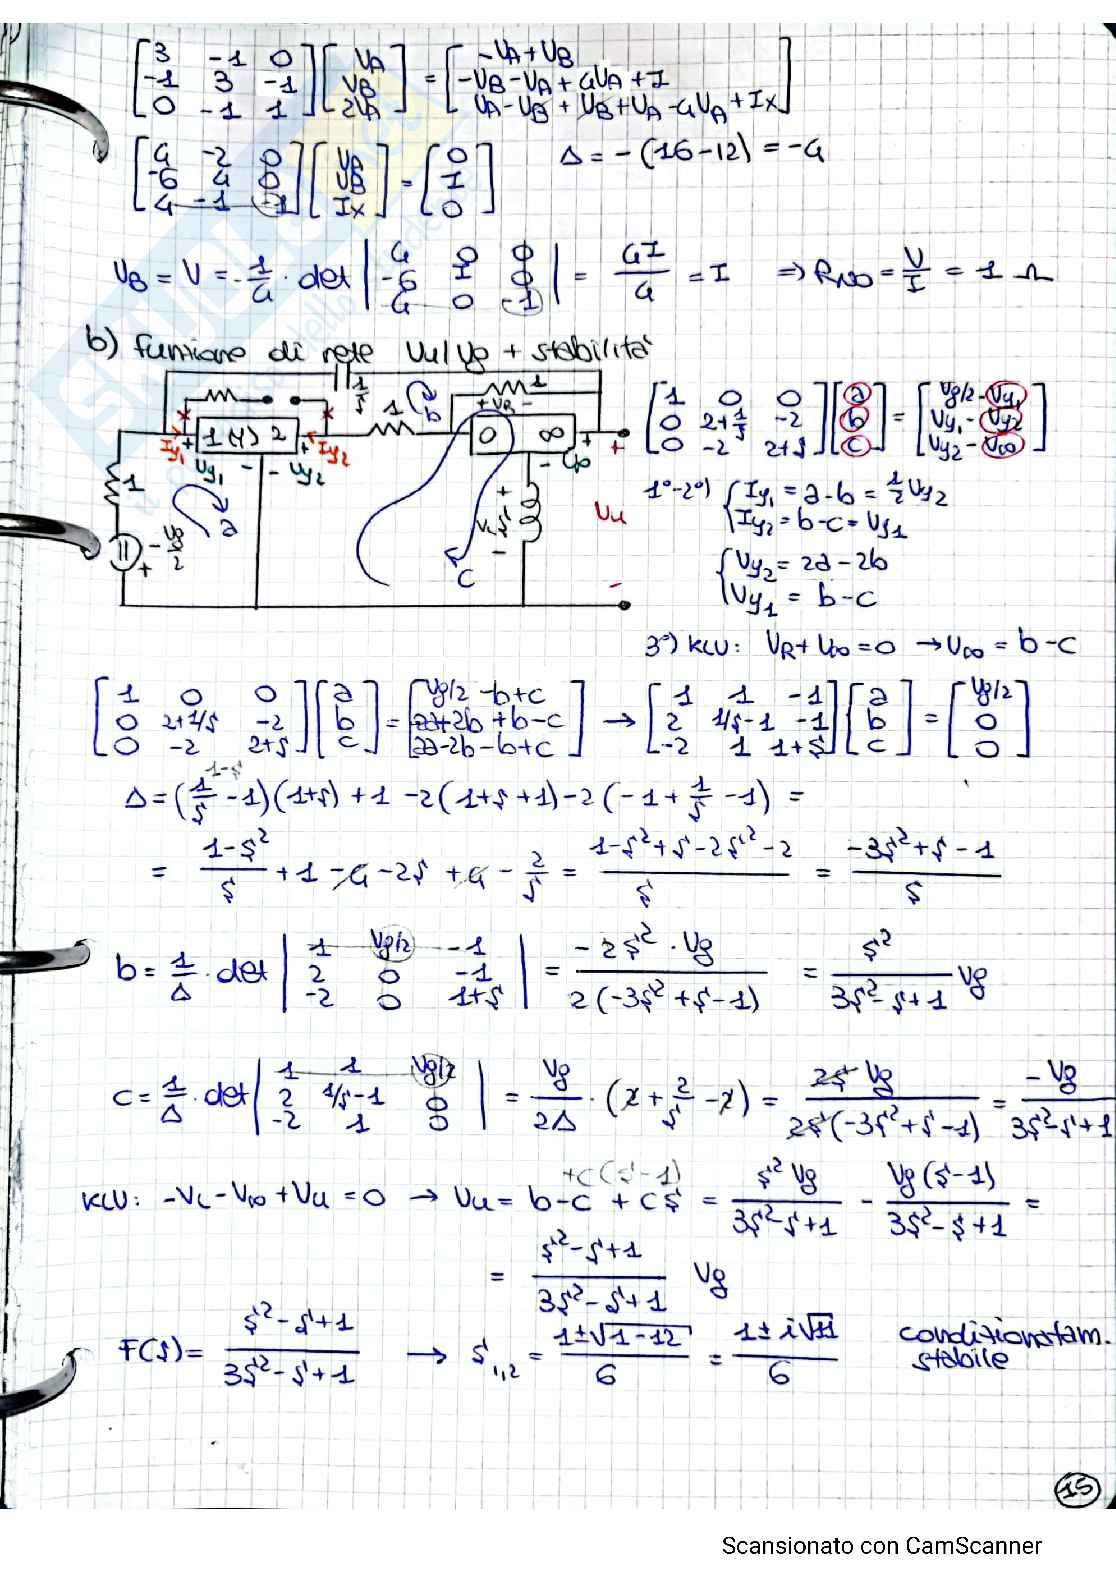 [3 -1 0; -1 3 -1; 0 -1 1] [VA; VB; 2VA] = [-VA+VB; -VB-VA+4VA+I; VA-VB+VB+VA-4VA+Ix]
[4 -2 0; -6 4 0; 4 -1 -1] [VA; VB; Ix] = [0; I; 0]   Δ = -(16-12) = -4
VB = V = -1/4 · det |4 0 0; -6 I 0; 4 0 -1| = 4I/4 = I ⇒ RNO = V/I = 1 Ω
b) funzione di rete Vu/Vg + stabilità
1/s 1
1 b + VR -
1(Y)2 0 ∞ +
Iy1 + Vy1 - - Vy2 + Iy2 - V∞
1 a VL s + - Vu + -
- Vg/2 + c
[1 0 0; 0 2+1/s -2; 0 -2 2+s] [a; b; c] = [Vg/2-Vy1; Vy1-Vy2; Vy2-V∞]
1°-2°) { Iy1 = a-b = 1/2 Vy2
Iy2 = b-c = Vy1
{ Vy2 = 2a-2b
Vy1 = b-c
3°) KLV: VR+V∞=0 → V∞ = b-c
[1 0 0; 0 2+1/s -2; 0 -2 2+s] [a; b; c] = [Vg/2 -b+c; -2a+2b+b-c; 2a-2b-b+c] → [1 1 -1; 2 1/s-1 -1; -2 1 1+s] [a; b; c] = [Vg/2; 0; 0]
1-s
Δ = (1/s -1)(1+s) + 1 -2(1+s+1) -2(-1+1/s -1) =
= (1-s²)/s + 1 -4 -2s +4 - 2/s = (1-s²+s-2s²-2)/s = (-3s²+s-1)/s
b = 1/Δ · det |1 Vg/2 -1; 2 0 -1; -2 0 1+s| = (-2s² · Vg)/(2(-3s²+s-1)) = s²/(3s²-s+1) Vg
c = 1/Δ · det |1 1 Vg/2; 2 1/s-1 0; -2 1 0| = Vg/2Δ · (2+2/s-2) = 2s Vg/(2s(-3s²+s-1)) = -Vg/(3s²-s+1)
+c(s-1)
KLV: -VL-V∞+Vu=0 → Vu = b-c + cs = s²Vg/(3s²-s+1) - Vg(s-1)/(3s²-s+1) =
= (s²-s+1)/(3s²-s+1) Vg
F(s) = (s²-s+1)/(3s²-s+1) → s1,2 = (1±√(1-12))/6 = (1±i√11)/6 condizionatam.
stabile
15
Scansionato con CamScanner